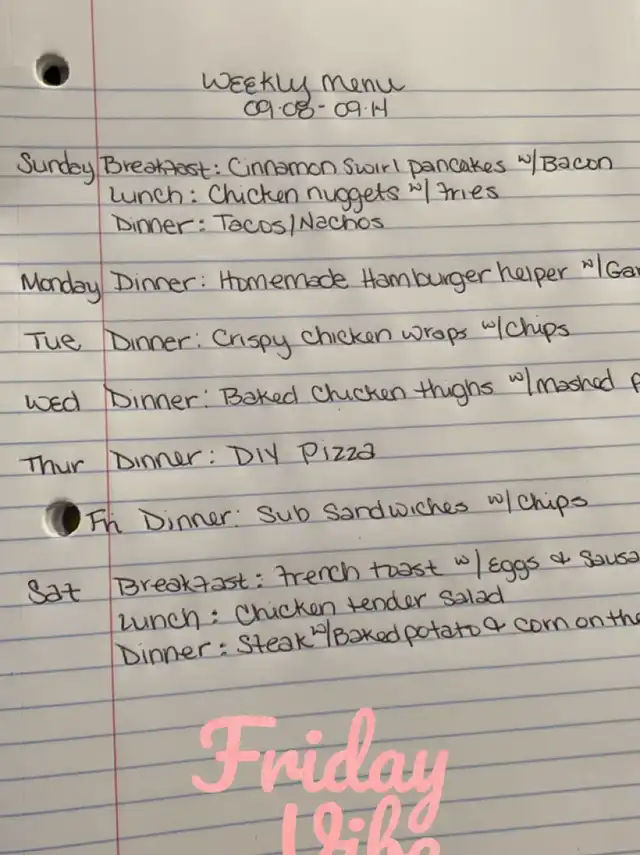 Weekly Menu
09.08 - 09.14
Sunday Breakfast: Cinnamon Swirl pancakes w/Bacon
Lunch: Chicken nuggets w/fries
Dinner: Tacos/Nachos
Monday Dinner: Homemade Hamburger helper w/Gar
Tue Dinner: Crispy chicken wraps w/chips
Wed Dinner: Baked chicken thighs w/mashed p
Thur Dinner: DIY Pizza
Fri Dinner: Sub Sandwiches w/chips
Sat Breakfast: french toast w/Eggs & Sausa
Lunch: Chicken tender salad
Dinner: Steak w/Baked potato & corn on the
Friday
Vibe